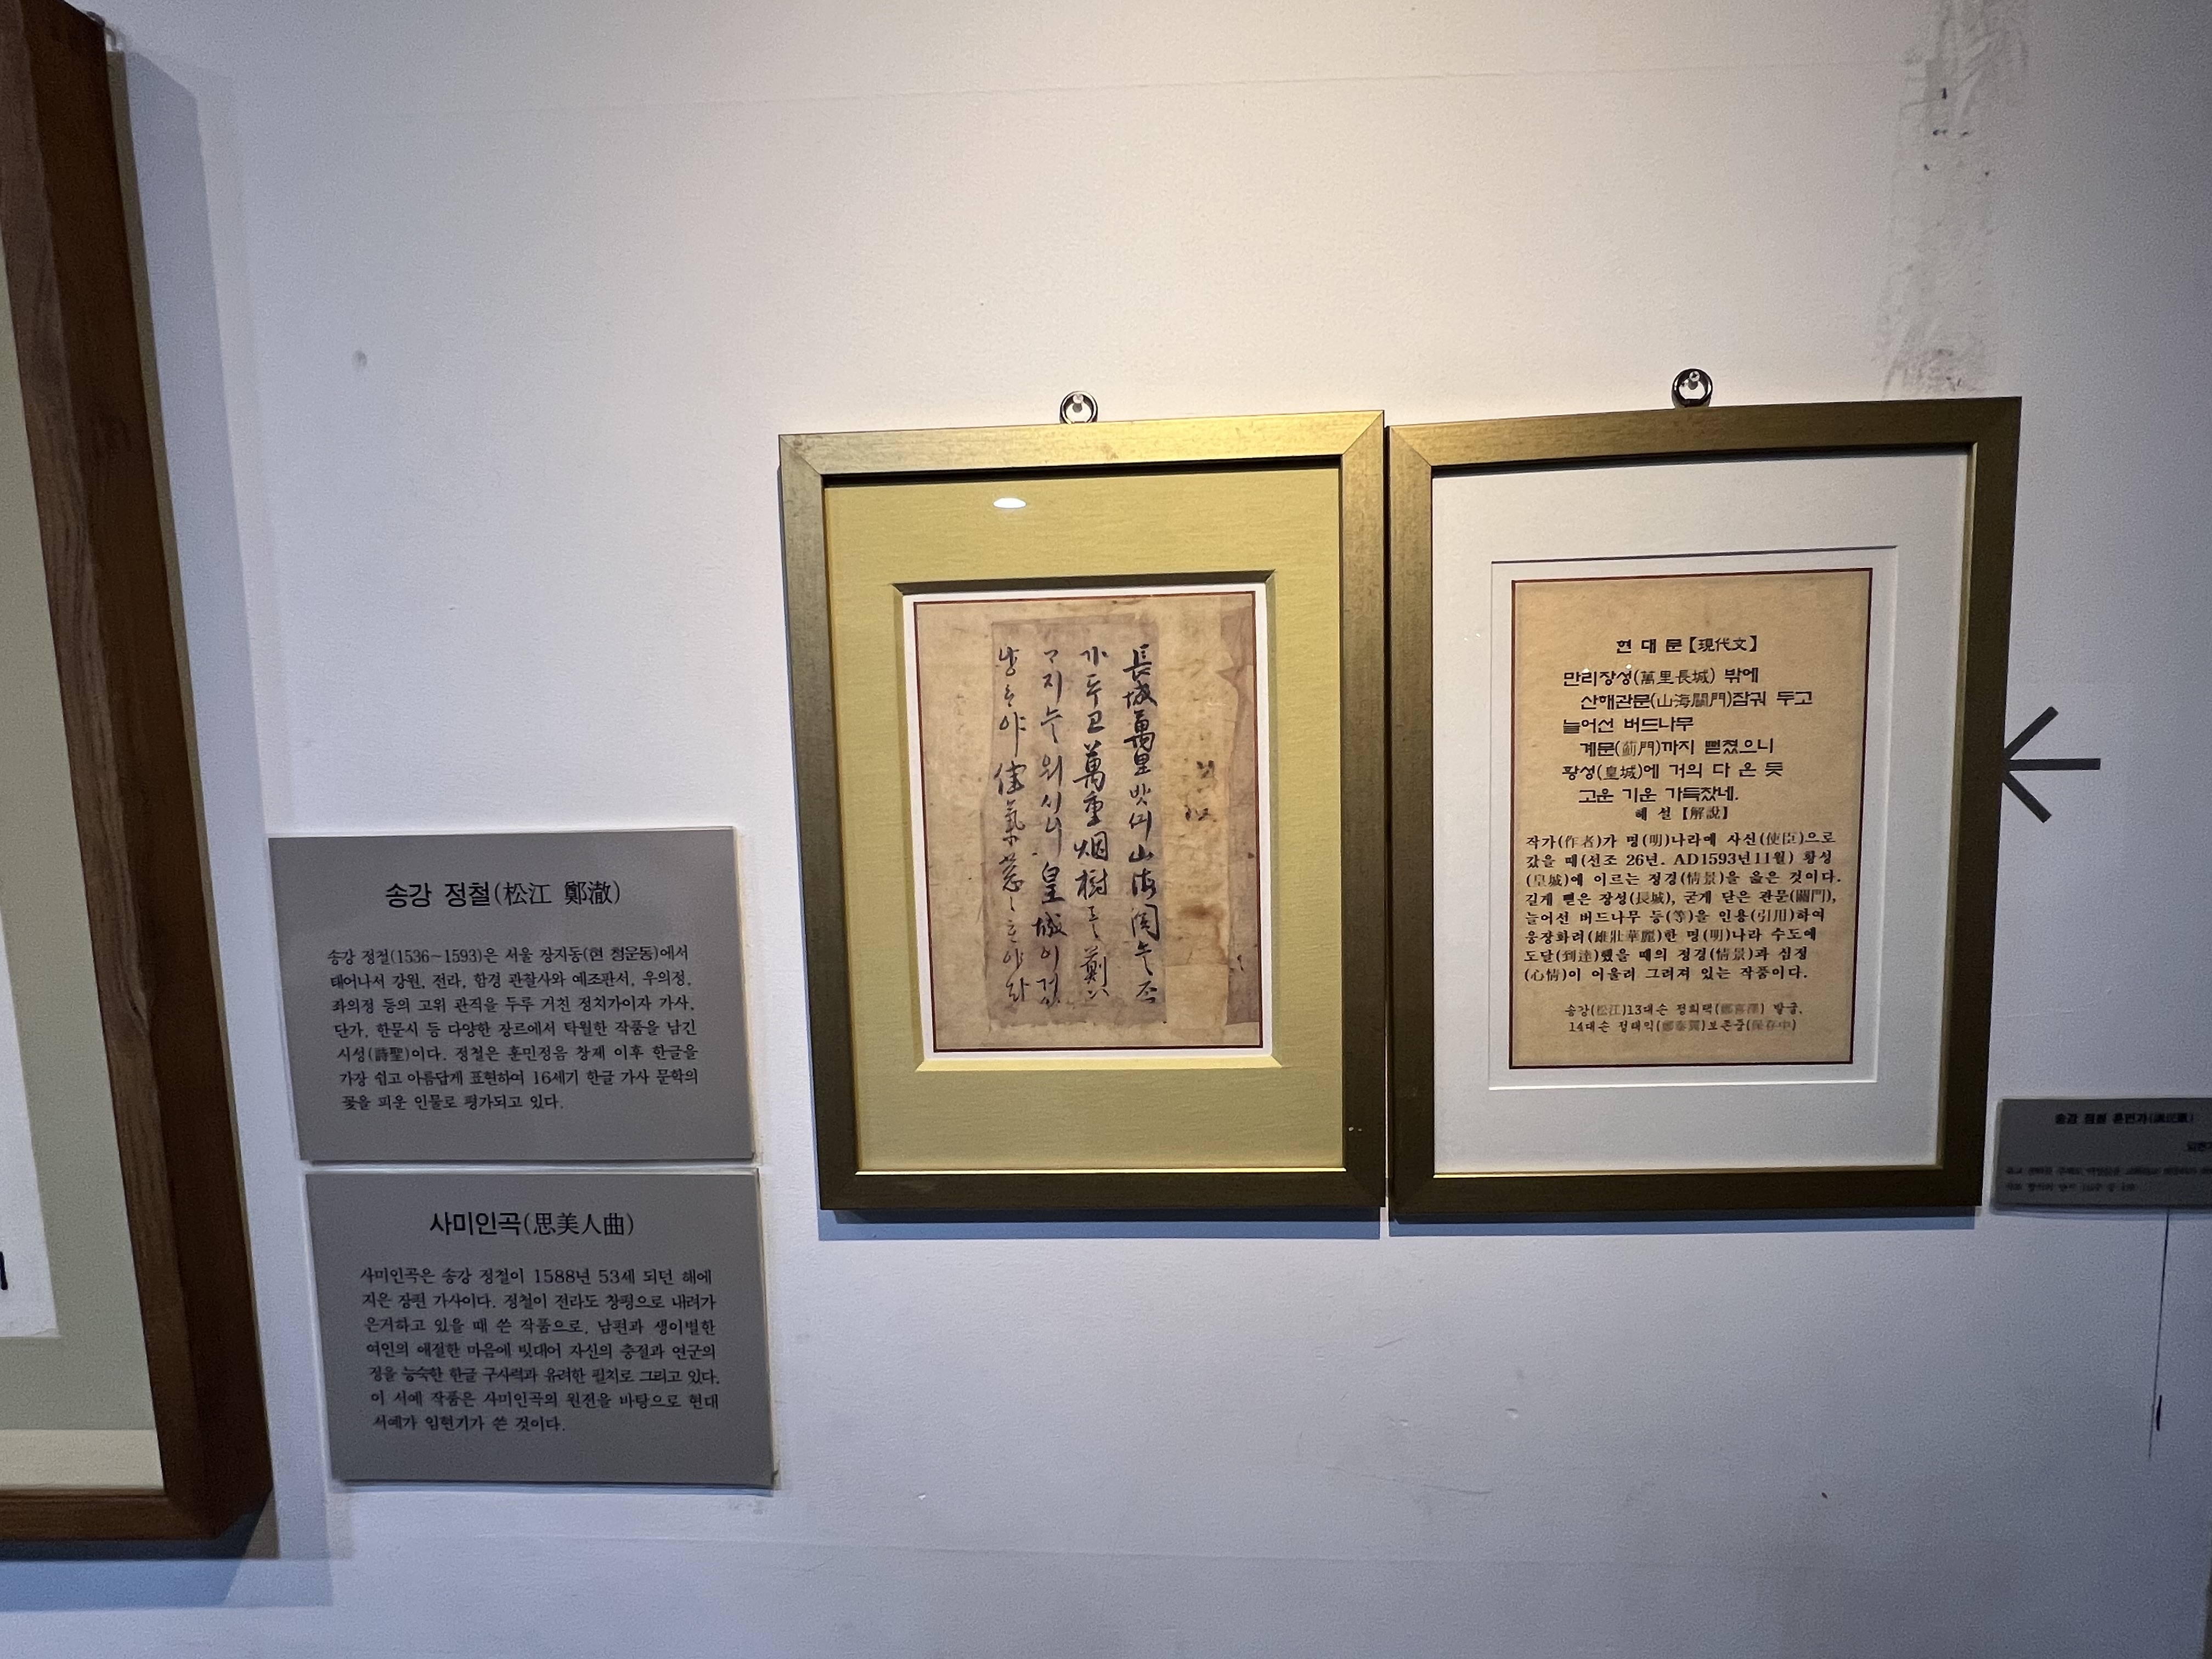 송강 정철(松江 鄭澈)
송강 정철(1536~1593)은 서울 장지동(현 청운동)에서
태어나서 강원, 전라, 함경 관찰사와 예조판서, 우의정,
좌의정 등의 고위 관직을 두루 거친 정치가이자 가사,
단가, 한문시 등 다양한 장르에서 탁월한 작품을 남긴
시성(詩聖)이다. 정철은 훈민정음 창제 이후 한글을
가장 쉽고 아름답게 표현하여 16세기 한글 가사 문학의
꽃을 피운 인물로 평가되고 있다.
사미인곡(思美人曲)
사미인곡은 송강 정철이 1588년 53세 되던 해에
지은 장편 가사이다. 정철이 전라도 창평으로 내려가
은거하고 있을 때 쓴 작품으로, 남편과 생이별한
여인의 애절한 마음에 빗대어 자신의 충절과 연군의
정을 능숙한 한글 구사력과 유려한 필치로 그리고 있다.
이 서예 작품은 사미인곡의 원전을 바탕으로 현대
서예가 임현기가 쓴 것이다.
長城萬里밧긔山海関는
두고萬重烟樹
지는 皇城이
야佳氣葱
현 대 문【現代文】
만리장성(萬里長城) 밖에
산해관문(山海關門)잠궈 두고
늘어선 버드나무
계문(薊門)까지 뻗쳤으니
황성(皇城)에 거의 다 온 듯
고운 기운 가득찼네.
해 설【解說】
작가(作者)가 명(明)나라에 사신(使臣)으로
갔을 때(선조 26년. AD1593년11월) 황성
(皇城)에 이르는 정경(情景)을 읊은 것이다.
길게 뻗은 장성(長城), 굳게 닫은 관문(關門),
늘어선 버드나무 등(等)을 인용(引用)하여
웅장화려(雄壯華麗)한 명(明)나라 수도에
도달(到達)했을 때의 정경(情景)과 심정
(心情)이 어울려 그려져 있는 작품이다.
송강(松江)13대손 정희택(鄭喜澤) 발굴,
14대손 정태익(鄭泰翼)보존중(保存中)
송강 정철 훈민가(訓民歌)